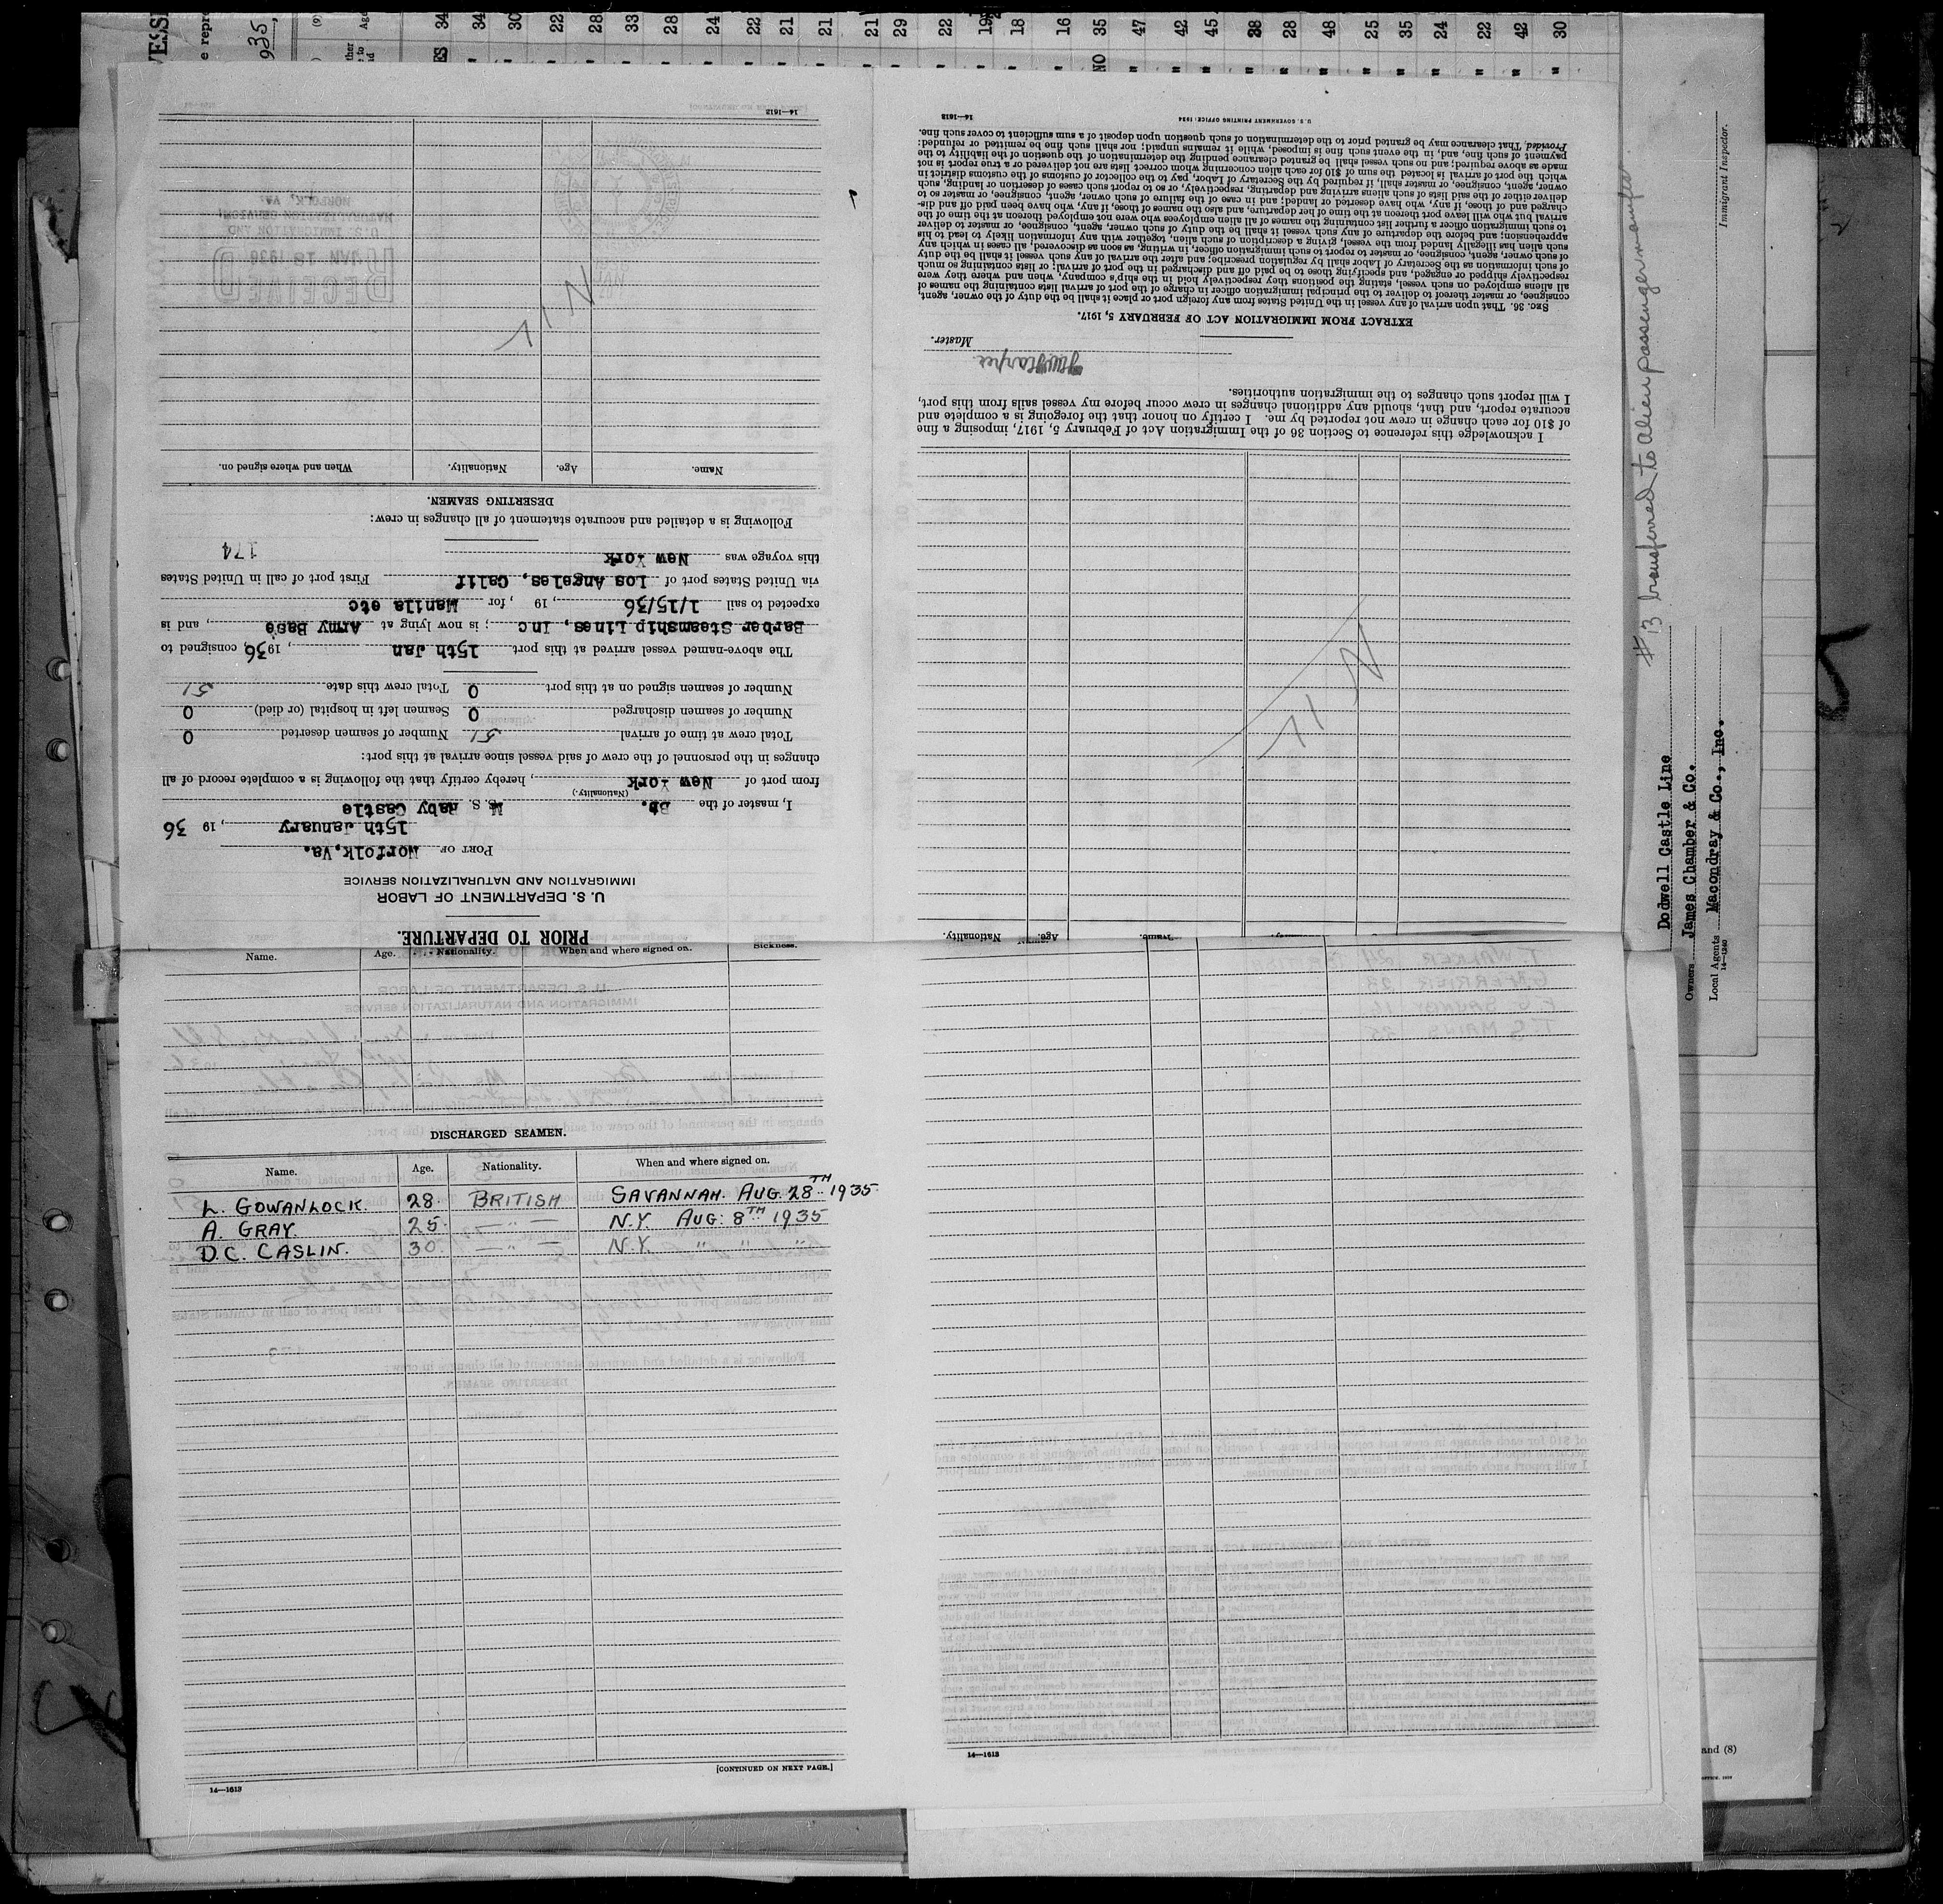 PRIOR TO DEPARTURE.
U. S. DEPARTMENT OF LABOR
IMMIGRATION AND NATURALIZATION SERVICE
PORT OF Norfolk,Va.
15th January, 19 36
I, master of the Br. M. S. Raby Castle
(Nationality.)
from port of New York, hereby certify that the following is a complete record of all
changes in the personnel of the crew of said vessel since arrival at this port:
Total crew at time of arrival 51 Number of seamen deserted 0
Number of seamen discharged 0 Seamen left in hospital (or died) 0
Number of seamen signed on at this port 0 Total crew this date 51
The above-named vessel arrived at this port 15th Jan, 1936, consigned to
Barber Steamship Lines, Inc; is now lying at Army Base, and is
expected to sail 1/15/36, 19 , for Manila etc
via United States port of Los Angeles, Calif First port of call in United States
this voyage was New York 174
Following is a detailed and accurate statement of all changes in crew:
DESERTING SEAMEN.
Name. Age. Nationality. When and where signed on.
NIL
RECEIVED
JAN 18 1936
U.S. IMMIGRATION AND
NATURALIZATION SERVICE
NORFOLK, VA.
14—1613
Age. Nationality.
NIL
I acknowledge this reference to Section 36 of the Immigration Act of February 5, 1917, imposing a fine
of $10 for each change in crew not reported by me. I certify on honor that the foregoing is a complete and
accurate report, and that, should any additional changes in crew occur before my vessel sails from this port,
I will report such changes to the immigration authorities.
Master.
EXTRACT FROM IMMIGRATION ACT OF FEBRUARY 5, 1917.
SEC. 36. That upon arrival of any vessel in the United States from any foreign port or place it shall be the duty of the owner, agent,
consignee, or master thereof to deliver to the principal immigration officer in charge of the port of arrival lists containing the names of
all aliens employed on such vessel, stating the positions they respectively hold in the ship's company, when and where they were
respectively shipped or engaged, and specifying those to be paid off and discharged in the port of arrival; or lists containing so much
of such information as the Secretary of Labor shall by regulation prescribe; and after the arrival of any such vessel it shall be the duty
of such owner, agent, consignee, or master to report to such immigration officer, in writing, as soon as discovered, all cases in which any
such alien has illegally landed from the vessel, giving a description of such alien, together with any information likely to lead to his
apprehension; and before the departure of any such vessel it shall be the duty of such owner, agent, consignee, or master to deliver
to such immigration officer a further list containing the names of all alien employees who were not employed thereon at the time of the
arrival but who will leave port thereon at the time of her departure, and also the names of those, if any, who have been paid off and dis-
charged and of those, if any, who have deserted or landed; and in case of the failure of such owner, agent, consignee, or master so to
deliver either of the said lists of such aliens arriving and departing, respectively, or so to report such cases of desertion or landing, such
owner, agent, consignee, or master shall, if required by the Secretary of Labor, pay to the collector of customs of the customs district in
which the port of arrival is located the sum of $10 for each alien concerning whom correct lists are not delivered or a true report is not
made as above required; and no such vessel shall be granted clearance pending the determination of the question of the liability to the
payment of such fine, and, in the event such fine is imposed, while it remains unpaid; nor shall such fine be remitted or refunded:
Provided, That clearance may be granted prior to the determination of such question upon deposit of a sum sufficient to cover such fine.
U. S. GOVERNMENT PRINTING OFFICE: 1934 14—1613
Name. Age. Nationality. When and where signed on. Sickness.
DISCHARGED SEAMEN.
Name. Age. Nationality. When and where signed on.
L. GOWANLOCK. 28 BRITISH SAVANNAH. AUG. 28TH 1935
A. GRAY. 25 — " — N.Y. AUG: 8TH 1935
D.C. CASLIN. 30 — " — N.Y. " " "
[CONTINUED ON NEXT PAGE.]
14—1613
14—1613
#13 transferred to alien passenger manifest
Immigrant Inspector.
Dodwell Castle Line
Owners James Chamber & Co.
Local Agents Macondray & Co., Inc.
14—1240
and (8)
34 34 30 22 28 33 28 24 22 21 21 21 29 22 19 18 16 35 47 42 45 38 28 48 25 35 24 22 42 30